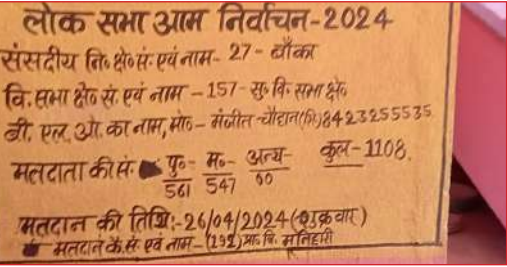 लोक सभा आम निर्वाचन-2024
संसदीय नि० क्षे० सं. एवं नाम- 27- बाँका
वि. सभा क्षे० सं. एवं नाम - 157- सु० वि. सभा क्षे०
बी. एल. ओ. का नाम, मो०- मंजीत चौहान (शि०) 8423255535
मतदाता की सं. पु०- म०- अन्य- कुल- 1108.
561 547 00
मतदान की तिथि:- 26/04/2024 (शुक्रवार)
मतदान के. सं. एवं नाम- (192) प्रा. वि. मनिहारी